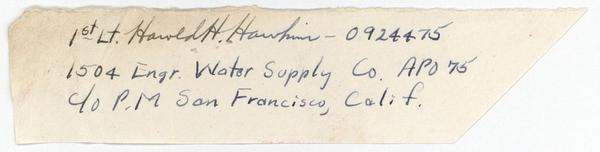 1st Lt. Harold H. Hawkins - 0924475
1504 Engr. Water Supply Co. APO 75
c/o P.M San Francisco, Calif.